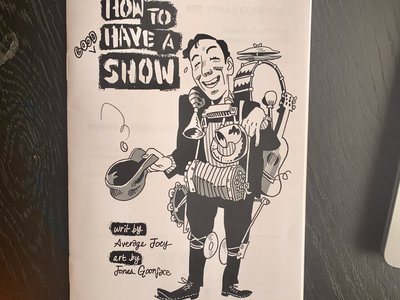 HOW TO
GOOD
HAVE A
SHOW
writ by
Average Joey
art by
Jonas Goonface